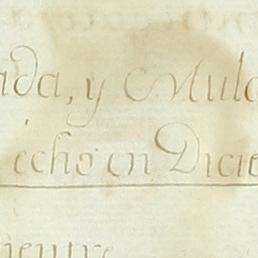 ada, y Mula
echo en Dicie
ientre